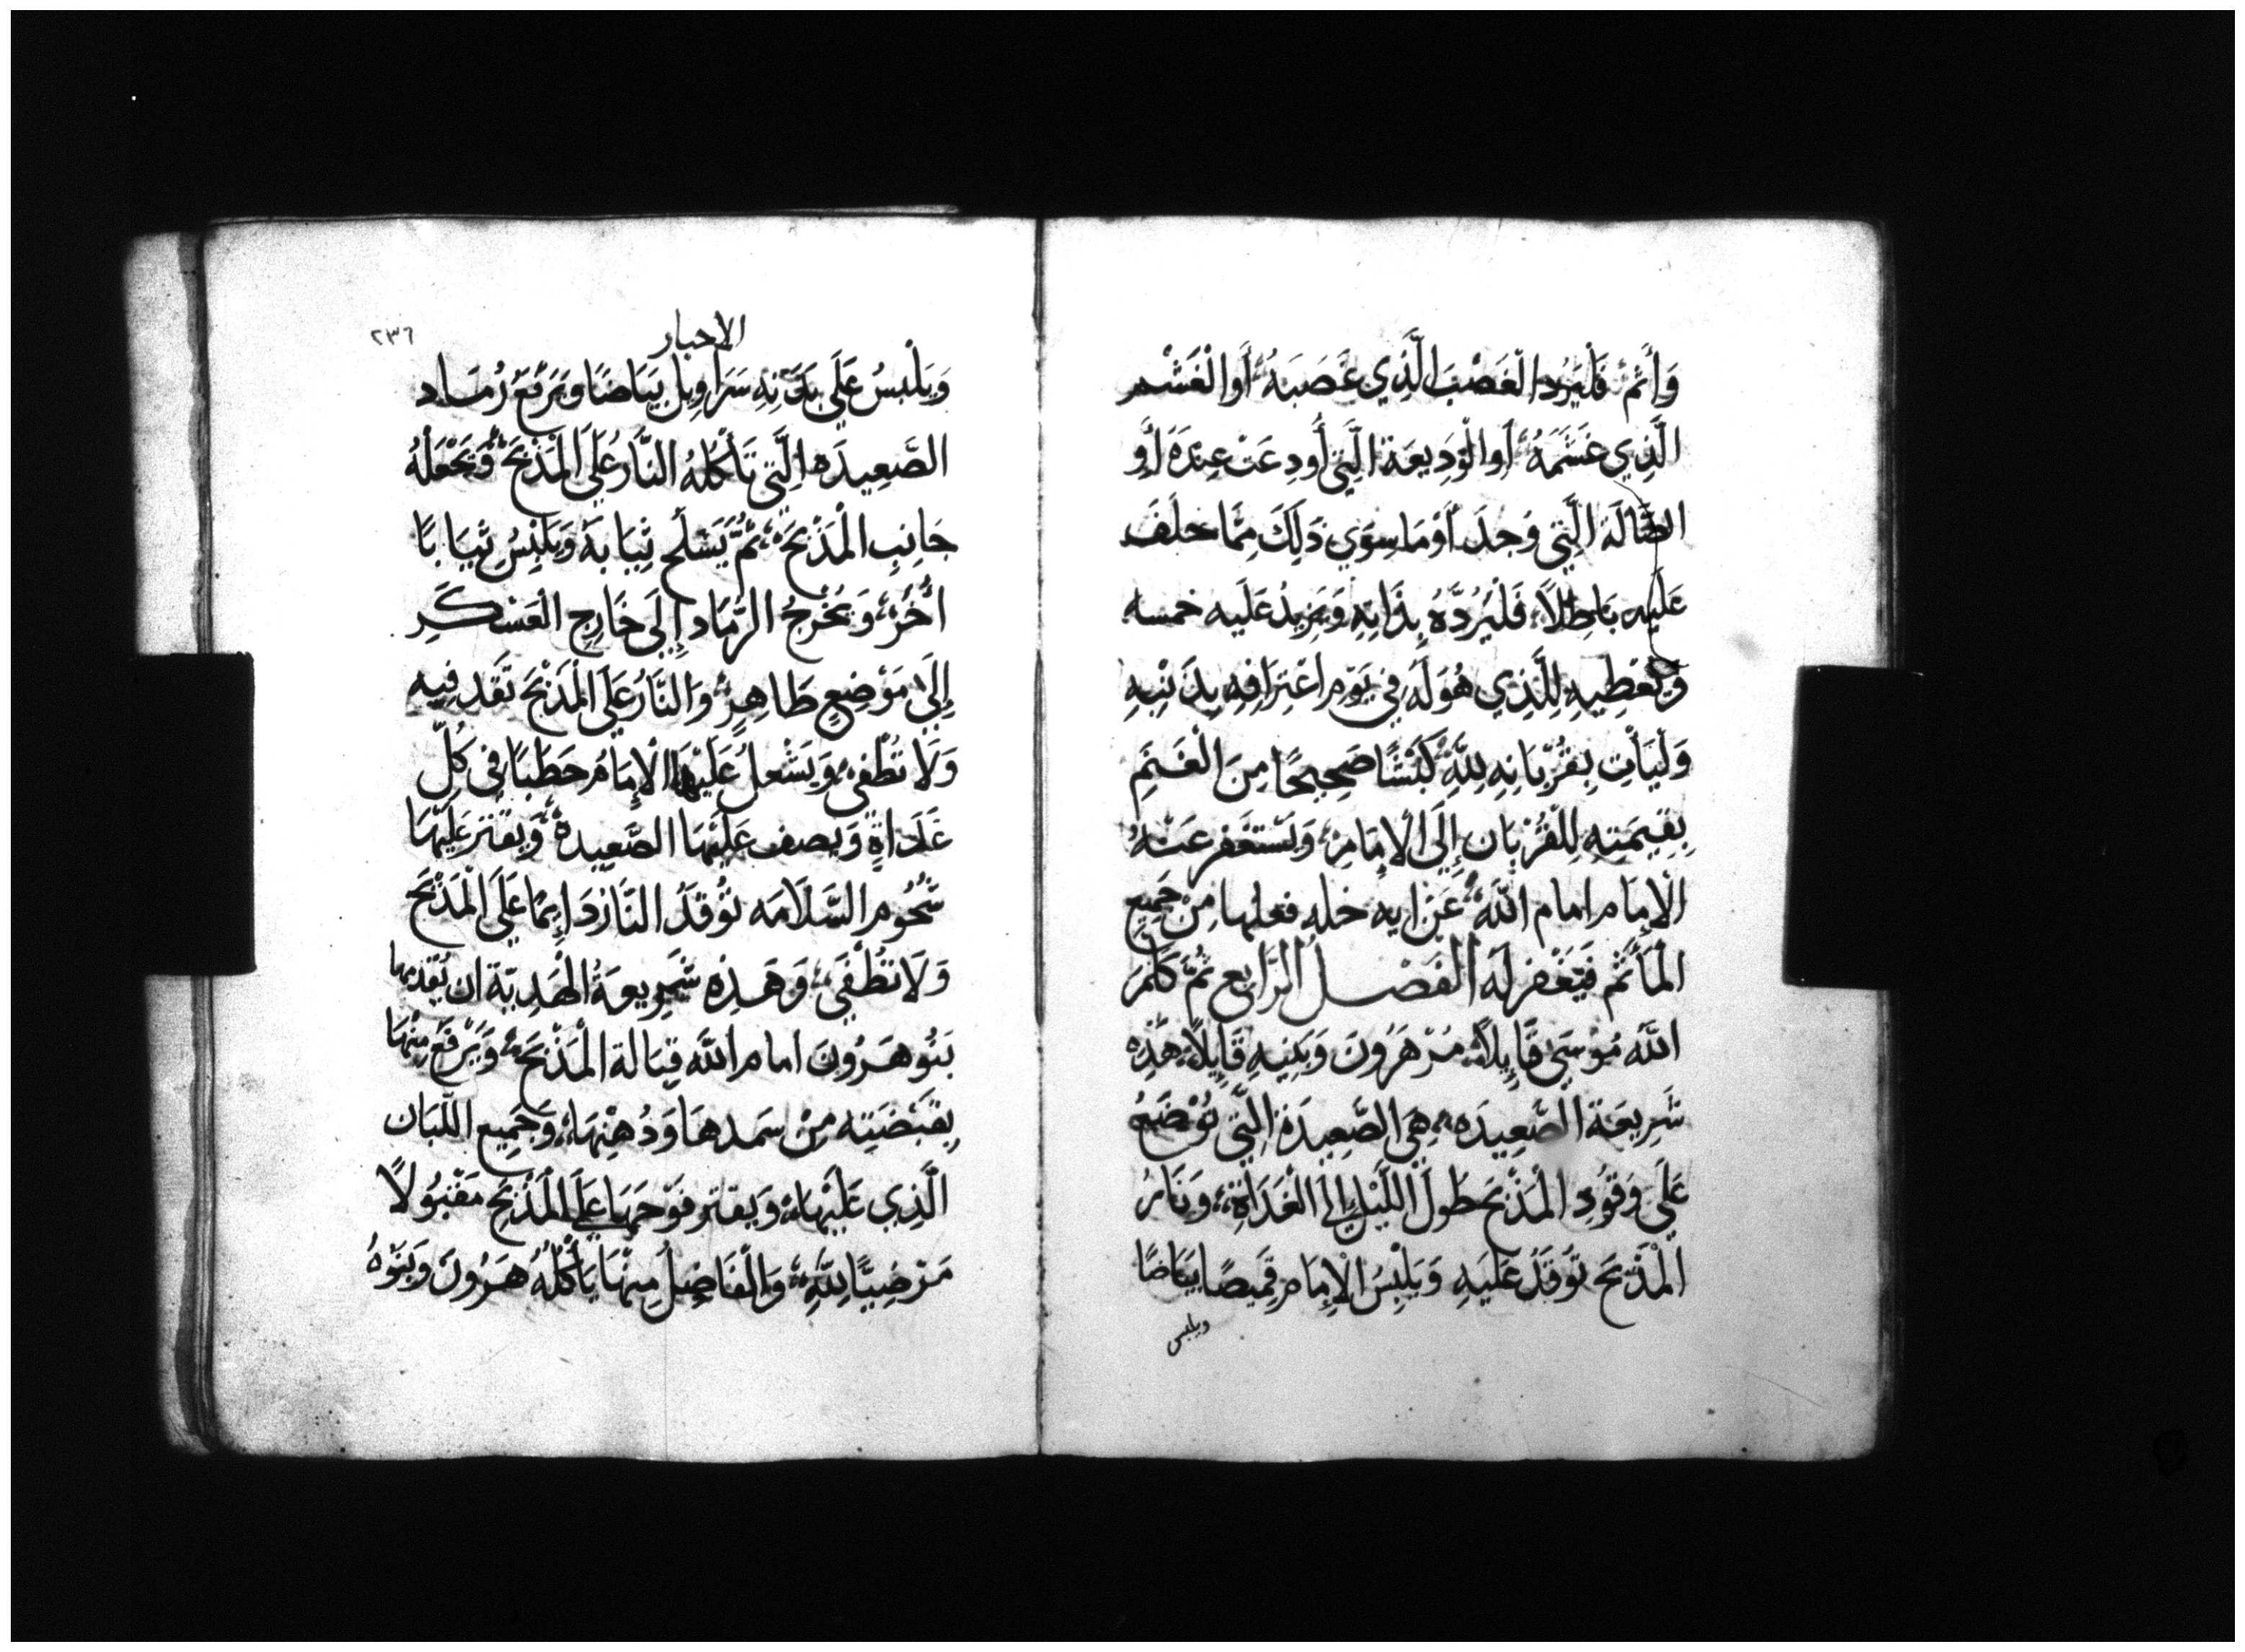 وَأَثِمَ فَلْيَرُدِ الْغَصْبَ الَّذِي غَصَبَهُ أَوِ الْغَشْم
الَّذِي غَشَمَهُ أَوِ الْوَدِيعَة الَّتِي أُودِعَتْ عِنْدَهُ أَوِ
الضَّالَة الَّتِي وَجدَ أَوْ مَا سِوَي ذَلِكَ مِمَّا حَلَفَ
عَلَيهِ بَاطِلاً فَلْيَرُدَّهُ بِذَاتِهِ وَيَزِيدُ عَلَيه خمسه
وَيُعْطِيهِ لِلَّذِي هُوَ لَهُ فِي يَوْمِ اعْتِرَافِهِ بِذَنْبِهِ
وَلْيَأْتِ بِقُرْبَانِهِ لِلَّهِ كَبْشًا صَحِيحًا مِنَ الْغَنَمِ
بِقِيمَتِهِ لِلْقُرْبَانِ إِلَى الْإِمَامِ وَيَسْتَغْفِرِ عَنْهُ
الْإِمَام امام اللَّه عَن ايه خله فعلها مِنْ جَمِيعِ
الْمَأْثَم فَيَغْفِر لَهُ الفَصْل الرَّابِع ثُمَّ كَلَّمَ
اللَّهُ مُوْسَى قَايِلاً مُرْ هَرُونَ وَبَنِيهِ قَايِلاً هَذِه
شَرِيعَة الصَّعِيدَه هِيَ الصَّعِيدَة الَّتِي تُوْضَعُ
عَلَي وَقُودِ الْمَذْبَحَ طُولَ اللَّيْلِ إِلَى الْغَدَاةِ وَنَارُ
الْمَذْبَحَ تُوقَدُ عَلَيهِ وَيَلْبِسُ الْإِمَام قَمِيصًا بَيَاضًا
ويلبس
الاحبار
٢٣٦
وَيَلْبسُ عَلَي بَدَنِهِ سَرَاوِيل بَيَاضًا وَيَرْفَعُ رُمَاد
الصَّعِيدَه الَّتِي تَأْكُلهُ النَّارُ عَلَي الْمَذْبَحَ وَيَجْعَلهُ
جَانِبِ الْمَذْبَحَ ثُمَّ يَسْلَح ثِيَابَهُ وَيَلْبِسُ ثِيَابًا
أُخَرُ وَيُخْرِجُ الرُّمَاد إِلَى خَارِجِ الْعَسْكَرِ
إِلَيَ مَوْضِعٍ طَاهِرٍ وَالنَّارُ عَلَي الْمَذْبَحَ تَقَد فِيه
وَلَا تُطْفَى وَيَشْعلُ عَلَيْهَا الْإِمَامُ حَطَبًا فِي كُلِّ
غَدَاةٍ وَيصف عَلَيْهَا الصَّعِيدهُ وَيقتر عَلَيْهَا
شُحُوم السَّلَامَه تُوقَدُ النَّارُ دَايِمًا عَلَى الْمَذْبَحَ
وَلَا تُطْفَى وَهَذِه شَرِيعَةُ الْهَدِيَّة ان يُقَدمها
بَنُو هَرُونَ امام اللَّه قِبَالة الْمَذْبَحَ وَيَرْفَعُ مِنْهَا
بِقَبْضَتِه مِنْ سَمِدهَا وَدُهْنِهَا وَجَمِيعِ اللّبَان
الَّذِي عَلَيْهَا وَيقتر فَوْحَهَا عَلَى الْمَذْبَحِ مَقْبُولاً
مَرْضِيًّا لِلَّهِ وَالْفَاضِلُ مِنْهَا يَأْكُلُهُ هَرُونَ وَبَنُوهُ